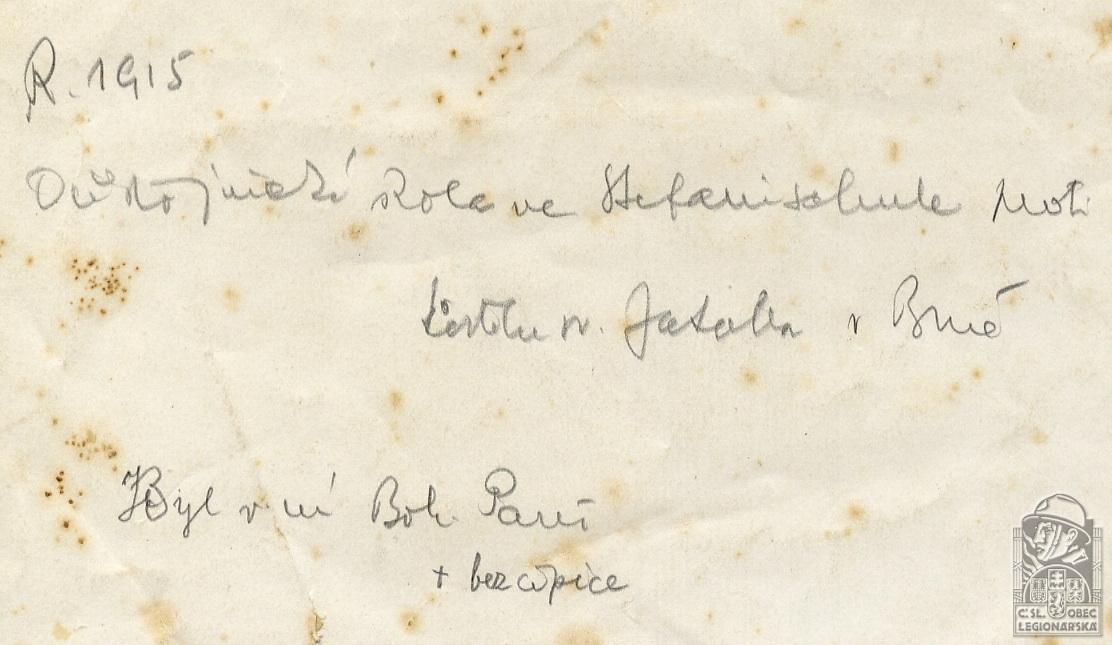 R. 1915
Důstojnická škola ve Stefanischule proti
kostelu sv. Jakoba v Brně
Byl v ní Boh. Pavel
+ bez čepice
Č.SL. OBEC
LEGIONÁŘSKÁ